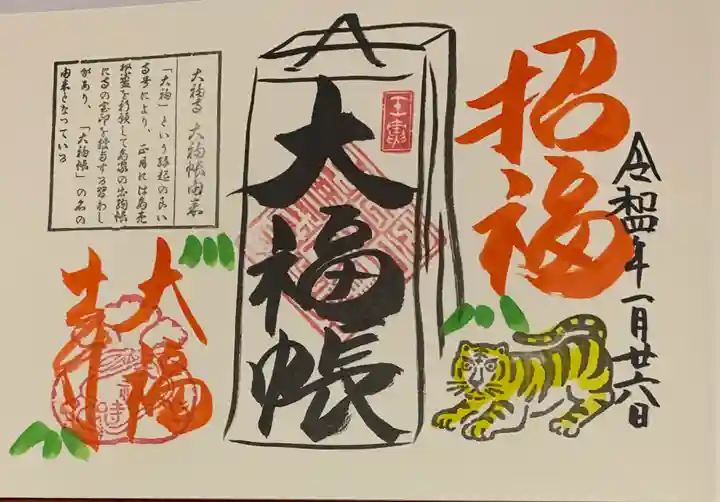 招福
令和四年一月廿六日
大福帳
大福寺 大福帳由来
「大福」という縁起の良い
寺号により、正月には商売
繁盛を祈願して商家の出納帳
に寺の宝印を授与する習わし
があり、「大福帳」の名の
由来となっている
大福寺